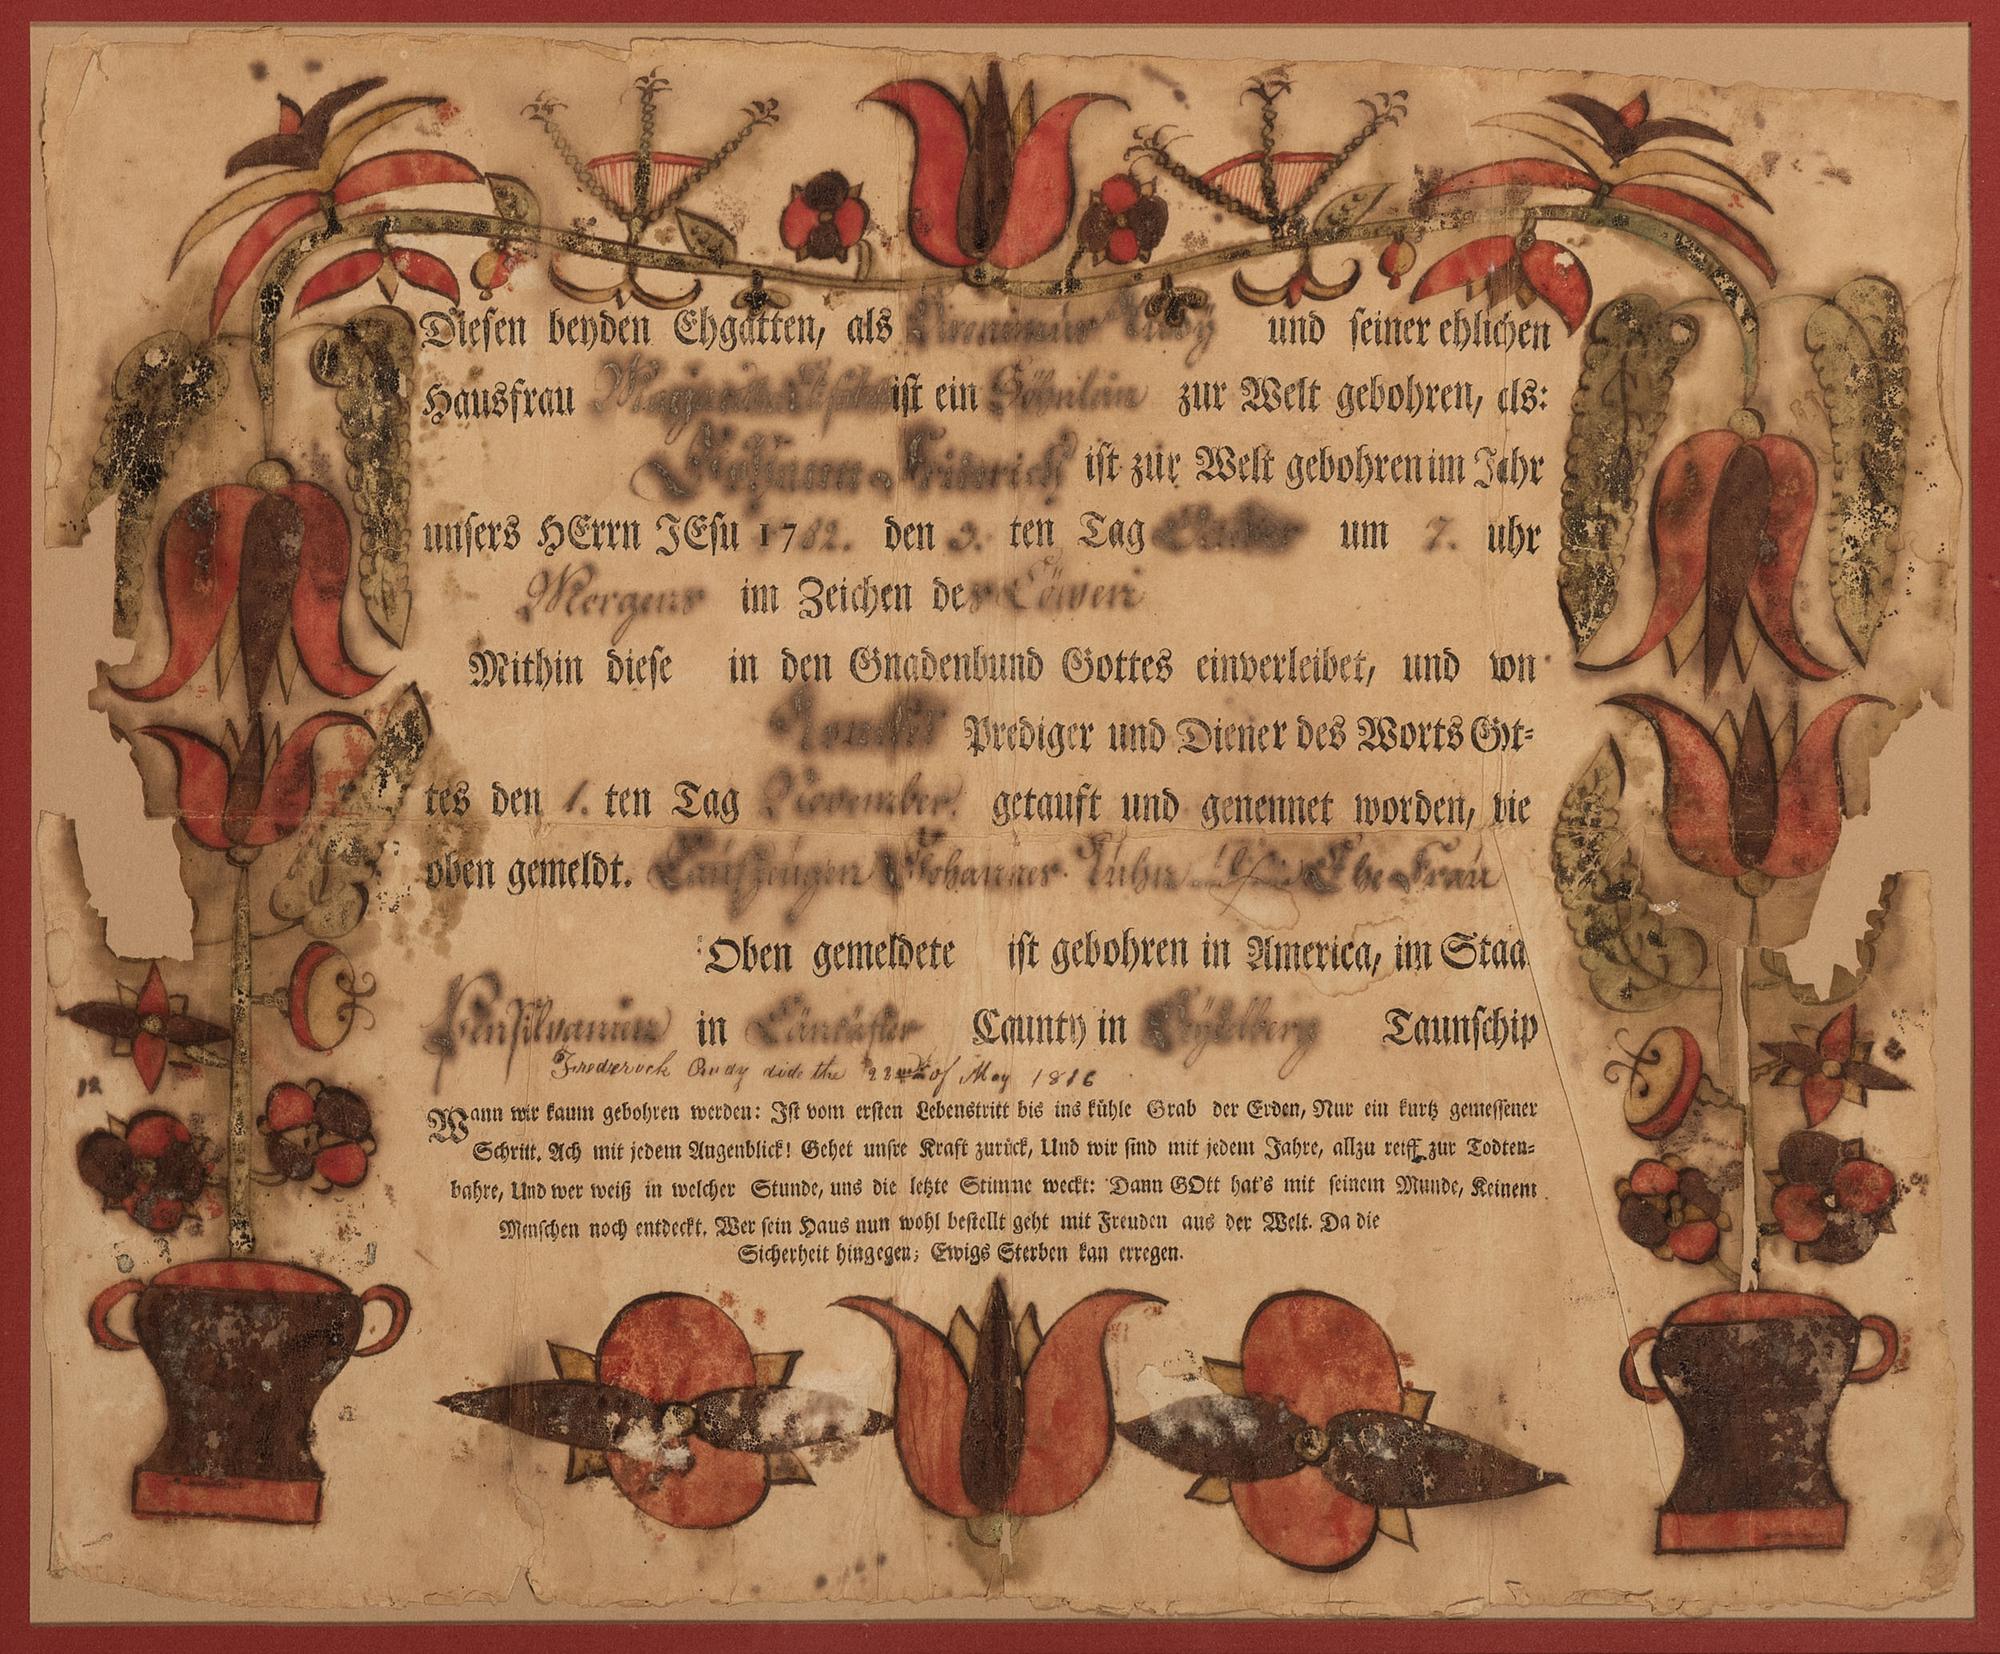 Diesen beyden Ehgatten, als und seiner ehlichen
Hausfrau ist ein Söhnlein zur Welt gebohren, als:
Johann Friderich ist zur Welt gebohren im Jahr
unsers HErrn JEsu 1782. den 3. ten Tag um 7. uhr
Morgens im Zeichen des Löwen
Mithin diese in den Gnadenbund Gottes einverleibet, und von
Prediger und Diener des Worts Got-
tes den 1. ten Tag November. getauft und genennet worden, wie
oben gemeldt. Taufzeugen Johannes Kuhn Ehe Frau
Oben gemeldete ist gebohren in America, im Staa
Pensilvanien in Caunty in Heydelberg Taunschip
Frederick Rudy dide the 22 of May 1816
Wann wir kaum gebohren werden: Ist vom ersten Lebenstritt bis ins kühle Grab der Erden, Nur ein kurtz gemessener
Schritt. Ach mit jedem Augenblick! Gehet unsre Kraft zurück, Und wir sind mit jedem Jahre, allzu reiff zur Todten-
bahre, Und wer weiß in welcher Stunde, uns die letzte Stimme weckt: Dann GOtt hat's mit seinem Munde, Keinem
Menschen noch entdeckt. Wer sein Haus nun wohl bestellt geht mit Freuden aus der Welt. Da die
Sicherheit hingegen; Ewigs Sterben kan erregen.